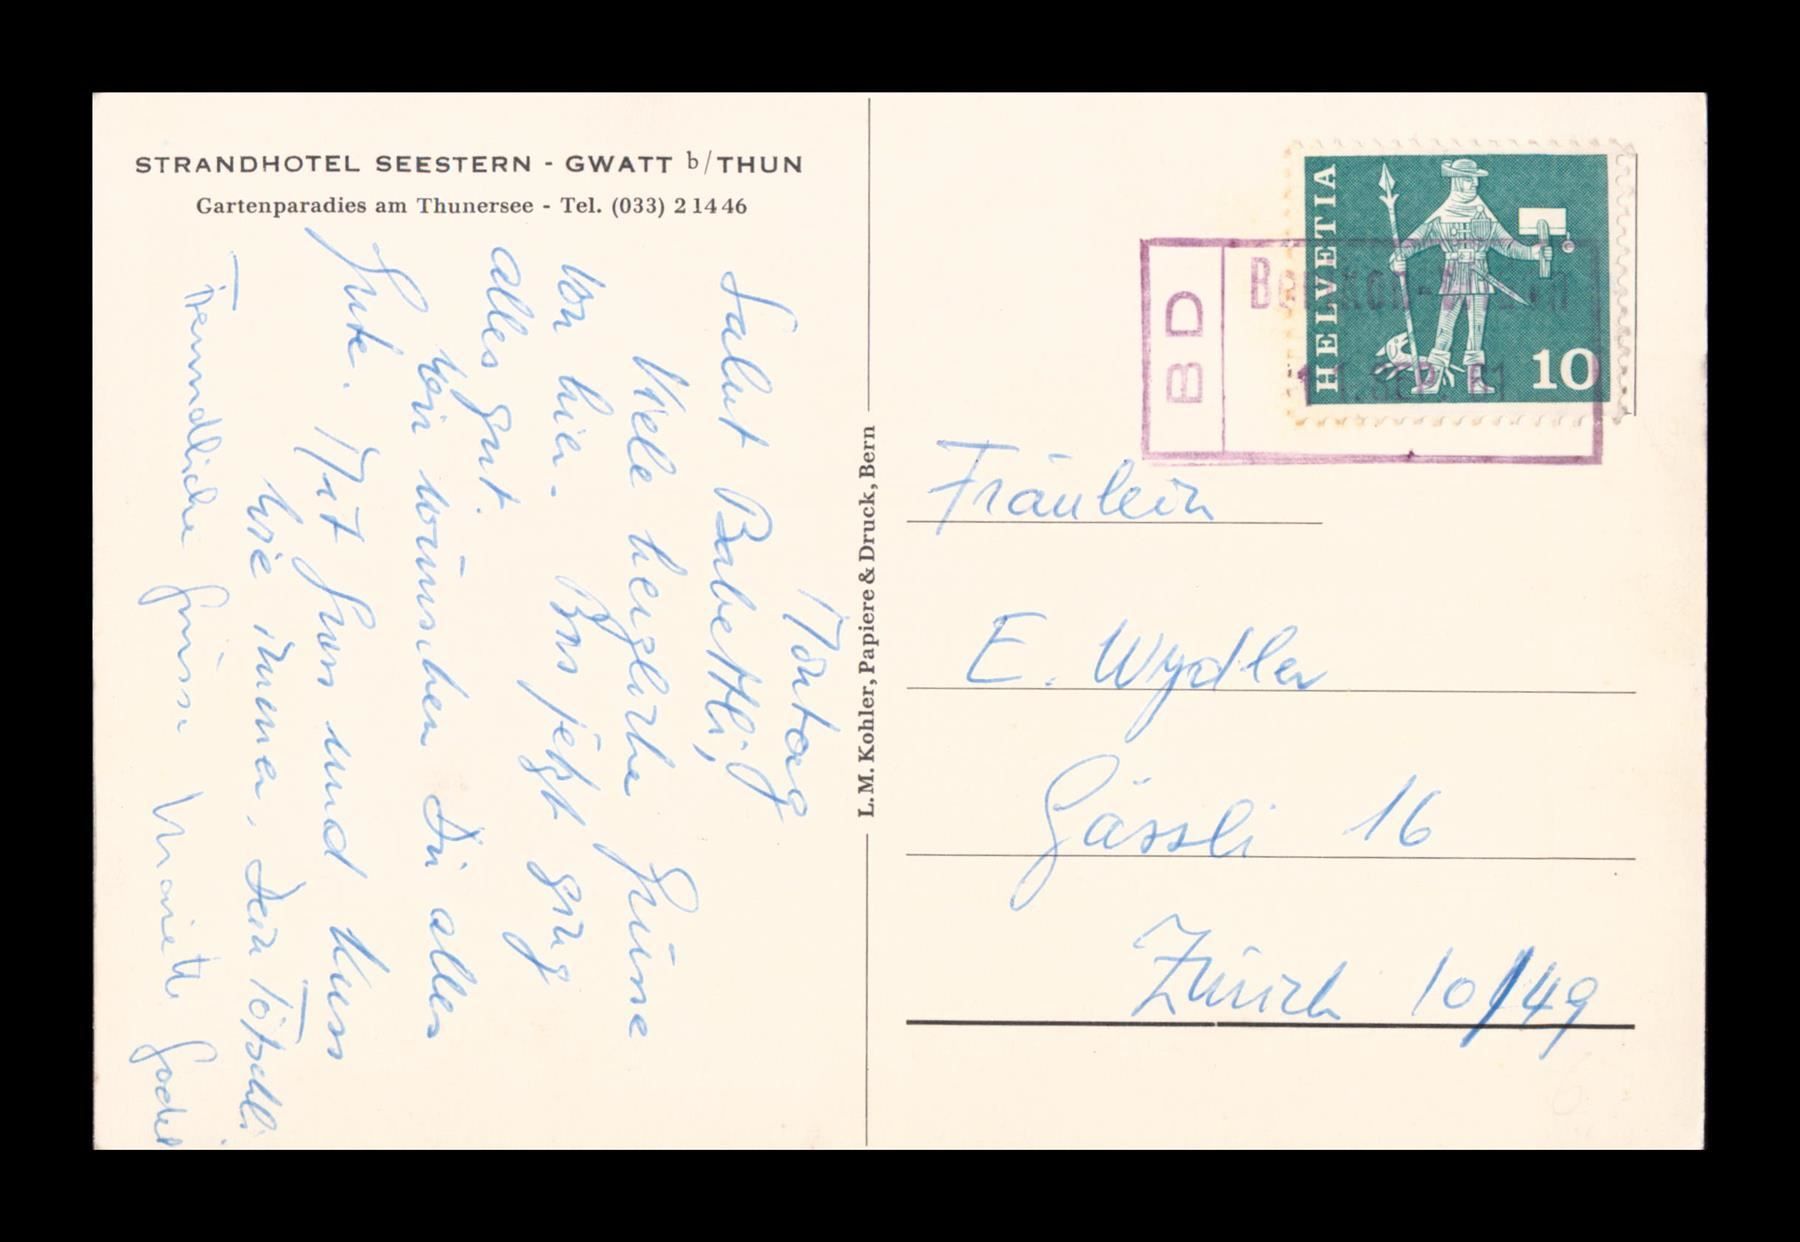 STRANDHOTEL SEESTERN - GWATT b/THUN
Gartenparadies am Thunersee - Tel. (033) 2 14 46
Montag
Salut Babettli,
Viele herzliche Grüsse
von hier. Bis jetzt ging
alles gut.
Wir wünschen Dir alles
Gute. Mit Gruss und Kuss
wie immer, Dein
Freundliche Grüsse
L. M. Kohler, Papiere & Druck, Bern
HELVETIA
10
BD
SEP.
Fräulein
E. Wydler
Gässli 16
Zürich 10/49